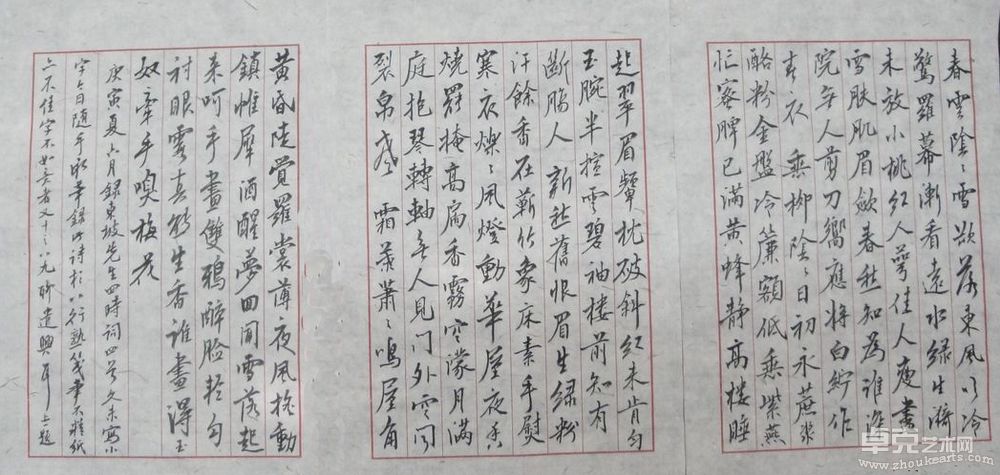 春雲陰々雪欲落東風和冷
驚羅幕漸看遠水緑生漪
未放小桃紅入萼佳人瘦盡
雪肤肌眉斂春愁知為誰深
院無人剪刀響應將白紵作
春衣 垂柳陰々日初永蔗漿
酪粉金盤冷簾額低垂紫燕
忙蜜脾已滿黄蜂静高樓睡
起翠眉顰枕破斜紅未肯匀
玉腕半揎雲碧袖樓前知有
断腸人 新愁舊恨眉生緑粉
汗餘香在蘄竹象床素手熨
寒衣爍々風燈動華屋夜香
燒罷掩高扃香霧空濛月滿
庭抱琴轉軸無人見門外空聞
裂帛聲 霜葉蕭々鳴屋角
黄昏陡覺羅裳薄夜風摇動
鎮帷犀酒醒夢回聞雪落起
来呵手畫雙鴉醉臉輕匀
襯眼霞真態生香誰畫得玉
奴牽手嗅梅花
庚寅夏六月録東坡先生四時詞四首久未寫小
字今日隨手録此詩於八行熟箋筆不穫紙
亦不佳字不如意者又十之八九聊遣興耳上題
卓克艺术网
www.zhoukearts.com